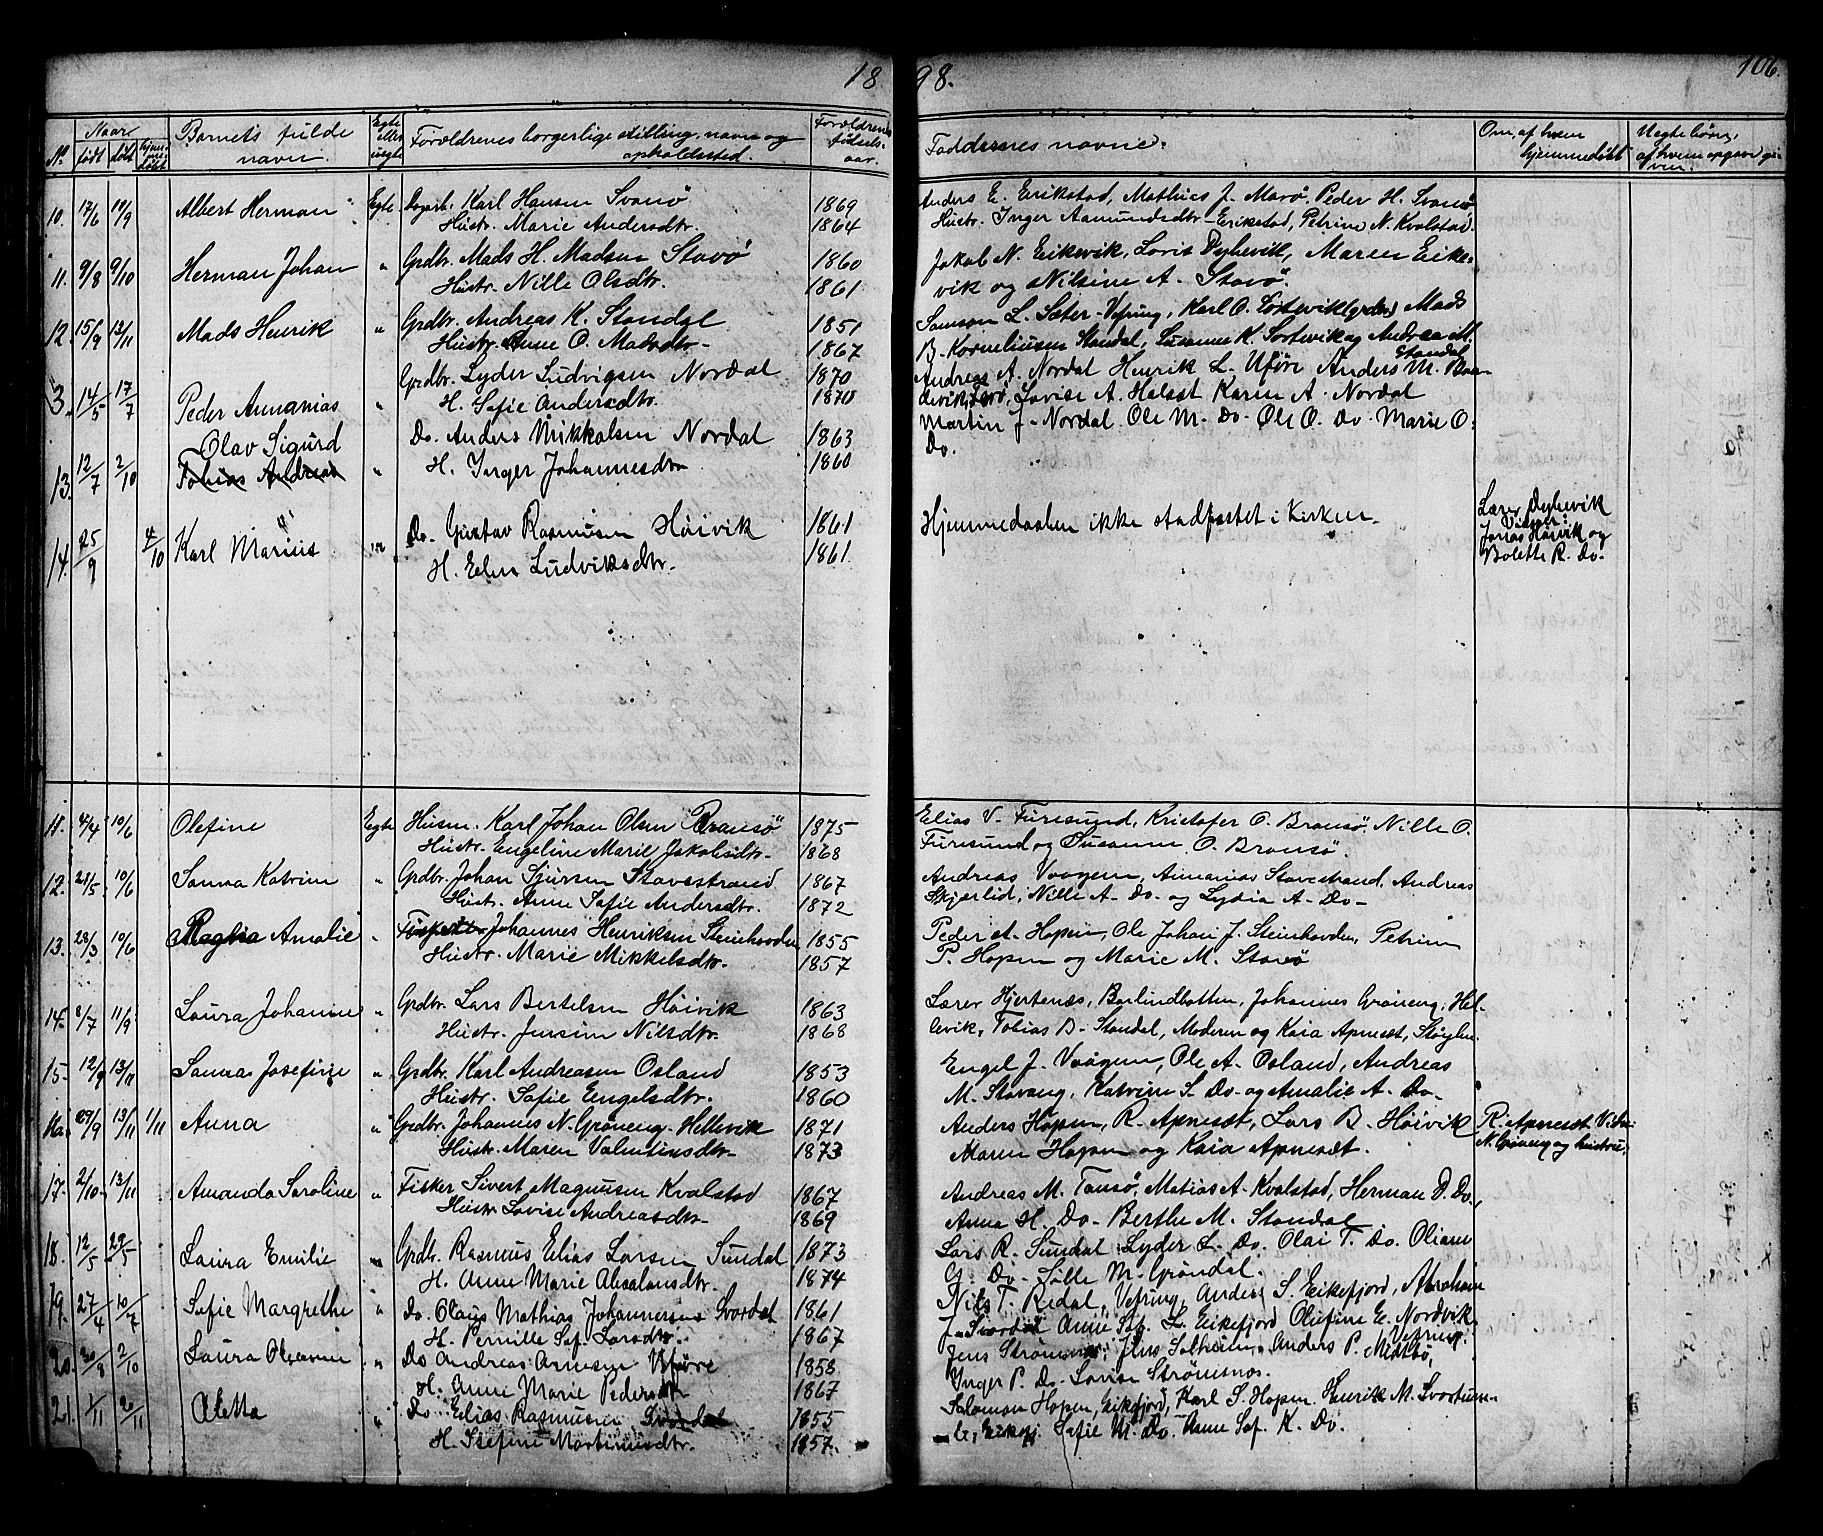 18
98.
106.
No. Naar født døbt hjemmedøbt Barnets fulde navn. Egte eller uegte Forældrenes borgerlige stilling, navn og opholdssted. Forældrenes fødselsaar. Faddernes navne. Om, af hvem hjemmedøbt Uegte børn, af hvem opgave given.
10. 17/6 10/9 Albert Herman Egte Karl Hansen Svanø 1869 Anders E. Erikstad, Mathias J. Marø, Peder H. Svanø
Hustr. Marie Andersdtr. 1864 Hustr. Inger Aamundsdtr. Erikstad, Petrine N. Kvalstad.
11. 9/8 9/10 Herman Johan " Grdbr. Mads H. Madsen Stavø 1860 Jakob N. Eikevik, Lovis Dyhevik, Maren Eike-
Hustr. Nille Olsdtr. 1861 vik og Nilsine A. Stavø.
12. 15/9 13/11 Mads Henrik " Grdbr. Andreas K. Standal 1851 Samson L. Sæter-Vefring, Karl O. Sortevik Mads
Hustr. Anne O. Madsdtr. 1867 B. Korneliusen Standal, Susanne K. Sortevik og Andrea M. Standal
3. 14/5 17/7 Peder Annanias " Grdbr. Lyder Ludvigsen Nordal 1870 Andreas A. Nordal Henrik L. Uføre Anders M.
H. Sofie Andersdtr. 1870 Lovise A. Helset Karen A. Nordal
13. 12/7 2/10 Olav Sigurd Tobias Andreas " Do. Anders Mikkalsen Nordal 1863 Martin J. Nordal Ole M. Do. Ole O. Do. Marie O.
H. Inger Johannesdtr. 1860 Do.
14. 25/9 4/10 Karl Marius " Do. Gustav Rasmusen Høivik 1861 Hjemmedaaben ikke stadfæstet i Kirken. Lærer Dyhevik
H. Elen Ludviksdtr. 1861 Vidner: Jonas Høivik og
Bolette R. Do.
11. 4/4 10/6 Olefine Egte Husm. Karl Johan Olsen Bransø 1875 Elias V. Furesund, Kristofer O. Bransø, Nille O.
Hustr. Engeline Marie Jakobsdtr. 1868 Furesund og Susanne O. Bransø.
12. 21/5 10/6 Sanna Katrine " Grdbr. Johan Sjursen Stavestrand 1867 Andreas Vaagen, Annanias Stavestrand, Andreas
Hustr. Anne Sofie Andersdtr. 1872 Skjerlid, Nille A. Do. og Lydia A. Do.
13. 28/3 10/6 Magna Amalie " Johannes Henriksen Steinhovden 1855 Peder A. Hopen, Ole Johan J. Steinhovden, Petrine
Hustr. Marie Mikkelsdtr. 1857 P. Hopen og Marie M. Stavø
14. 8/7 11/9 Laura Johanne " Grdbr. Lars Bertelsen Høivik 1863 Lærer Hjertenæs, Barlindbotten, Johannes Grøneng, Hel-
Hustr. Jensine Nilsdtr. 1868 levik, Tobias B. Standal, Moderen og Kaia Apnesæt,
15. 12/9 13/11 Sanna Josefine " Grdbr. Karl Andreasen Osland 1853 Engel J. Vaagen, Ole A. Osland, Andreas
Hustr. Sofie Engelsdtr. 1860 M. Stavang, Katrine S. Do. og Amalie A. Do.
16. 29/9 13/11 1/11 Anna " Grdbr. Johannes N. Grøneng Hellevik 1871 Anders Hopen, R. Apnesæt, Lars B. Høivik R. Apnesæt Vidne:
Hustr. Maren Valentinsdtr. 1873 Maren Hopen og Kaia Apnesæt. N. Grøneng og hustru.
17. 2/10 13/11 Amanda Saroline " Fisker Sivert Magnusen Kvalstad 1867 Andreas M. Tansø, Matias A. Kvalstad, Herman D. Do,
Hustr. Lovise Andreasdtr. 1869 Anna H. Do. Berthe M. Standal
18. 12/5 29/5 Laura Emilie " Grdbr. Rasmus Elias Larsen Sundal 1873 Lars R. Sundal Lyder L. Do. Olai T. Do. Oliane
H. Anne Marie Absalonsdtr. 1874 G. Do. Sølle M. Grøndal.
19. 27/4 10/7 Sofie Margrethe " Do. Olaus Mathias Johannesen Svardal 1861 Nils T. Redal, Vefring, Anders S. Eikefjord, Abraham
H. Pernille Sof. Larsdtr. 1867 J. Svardal Anne Sof. L. Eikefjord Olufine E. Nordvik Vefring.
20. 30/8 2/10 Laura " Do Andreas Arnesen Uføre 1858 Jens Strømsnes, Jens Solheim, Anders P. Midtbø,
H. Anne Marie Pedersdtr 1867 Inger P. Do. Lovise Strømsnes.
21. 1/11 2/11 Aletta " Do Elias Rasmusen Svardal 1855 Salomon Hopen, Eikefjord, Karl S. Hopen. Henrik M.
H. Stefine Mortensdtr. 1857. Eikefj. Sofie M. Do. Anne Sof. K. Do.